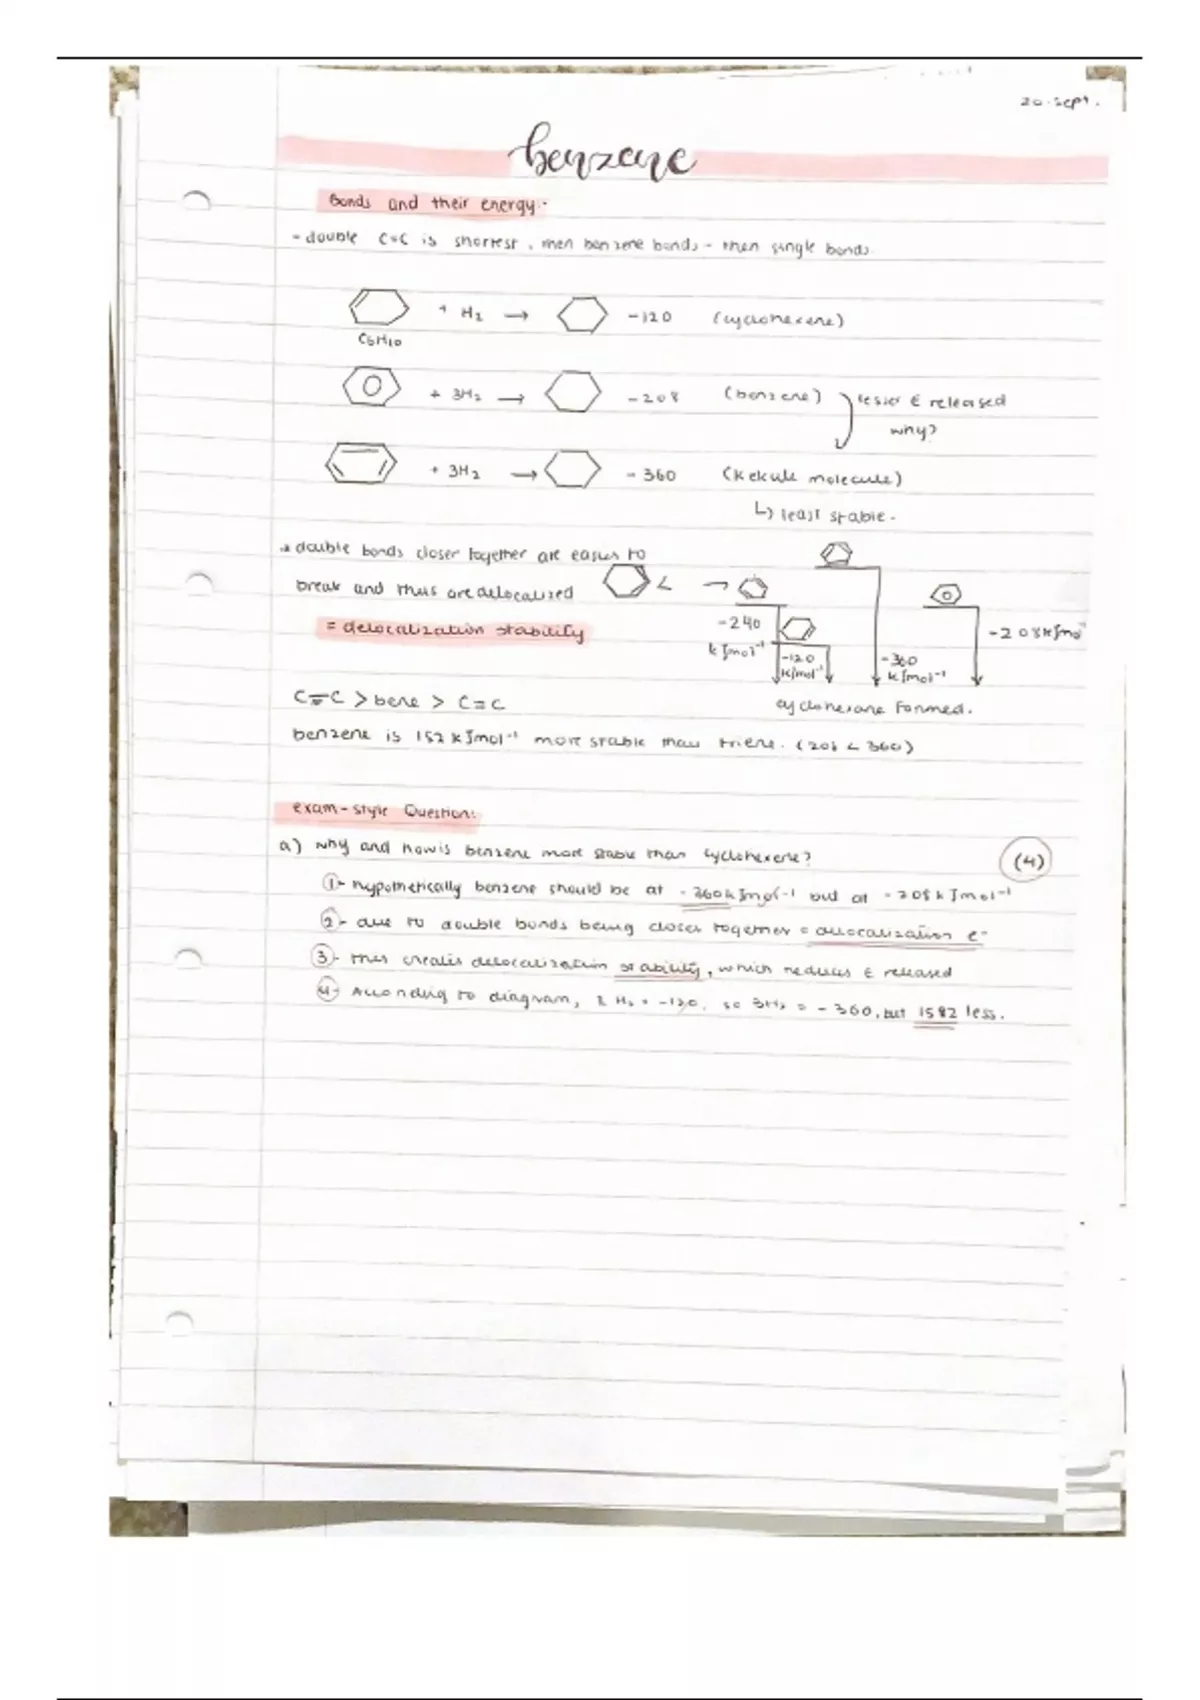 20. Sept.
benzene
Bonds and their energy:-
- double C=C is shortest, then benzene bonds - then single bonds.
+ H2 → -120 (cyclohexene)
C6H10
+ 3H2 → -208 (benzene) lesser E released
why?
+ 3H2 → -360 (Kekule molecule)
↳ least stable.
double bonds closer together are easier to
break and thus are delocalized
= delocalization stability
-240
kJmol-1
-120
kJmol-1
-360
kJmol-1
-208kJmol-1
cyclohexane formed.
C=C > bene > C=C
benzene is 152 kJmol-1 more stable than triene. (208 < 360)
exam-style Question:
a) why and how is benzene more stable than cyclohexene? (4)
①- hypothetically benzene should be at -360kJmol-1 but at -208kJmol-1
②- due to double bonds being closer together = delocalization e-
③- this creates delocalization stability, which reduces E released
④- According to diagram, H2 = -120, so 3H2 = -360, but 1582 less.